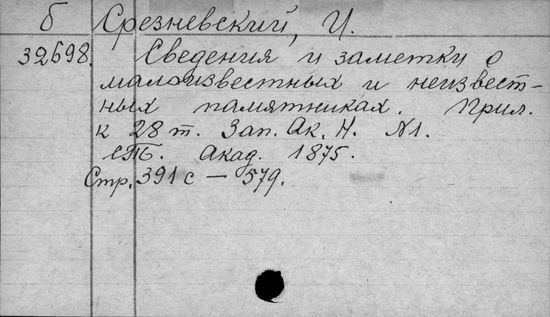 б Срезневский, И.
32698. Сведения и заметки о
малоизвестных и неизвест-
ных памятниках. Прил.
к 28 т. Зап. Ак. Н. №1.
СПб. Акад. 1875.
Стр. 391 с — 579.